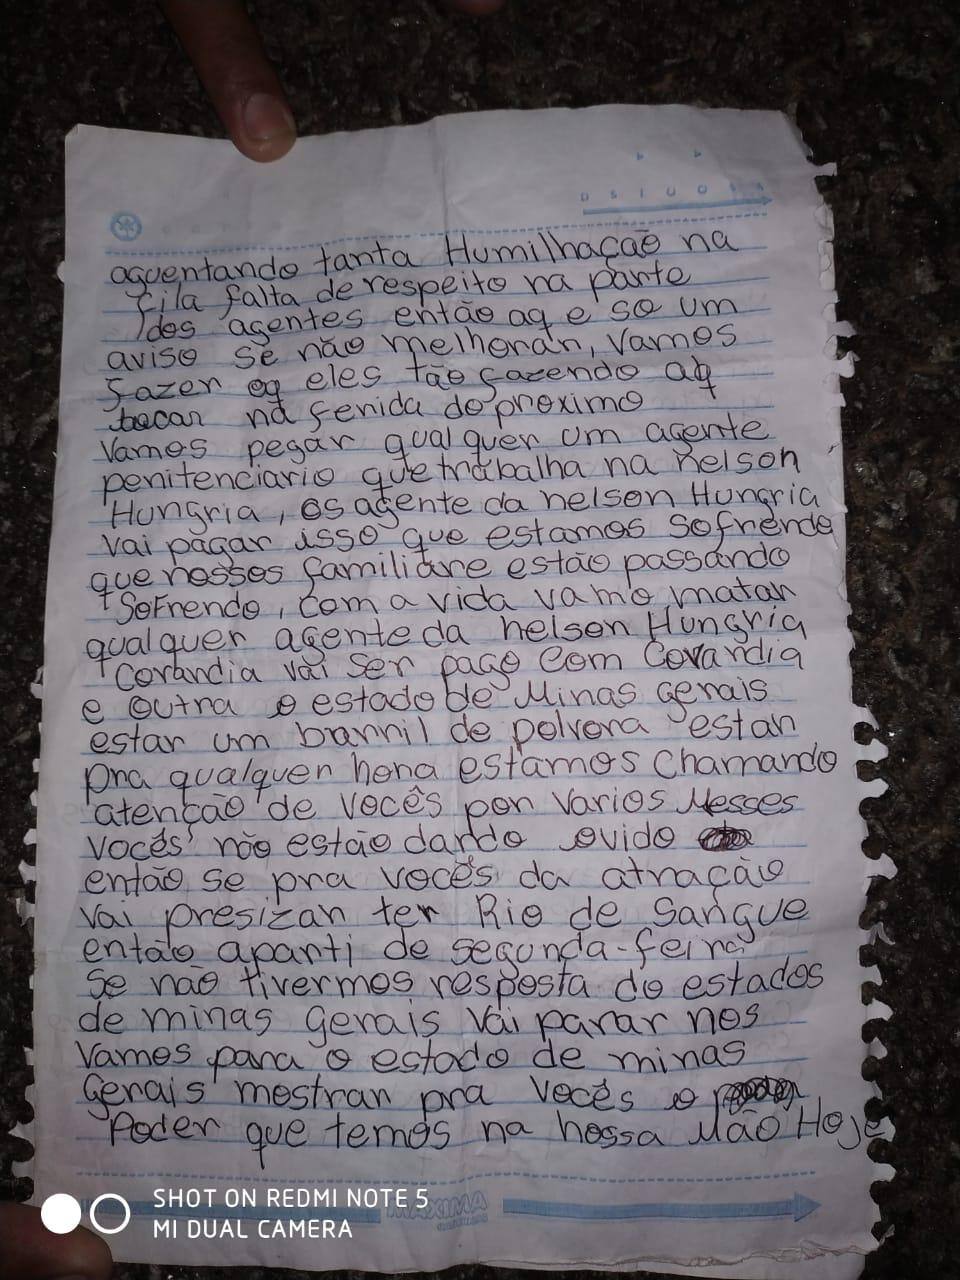 D S T Q Q S S
aguentando tanta Humilhação na
fila falta de respeito na parte
dos agentes então aq e so um
aviso se não melhoran, vamos
fazer oq eles tão fazendo aq
tocar na ferida do proximo
Vamos pegar qualquer um agente
penitenciario que trabalha na nelson
Hungria, os agente da nelson Hungria
vai pagar isso que estamos sofrendo
que nossos familiare estão passando
Sofrendo, com a vida vamo matar
qualquer agente da nelson Hungria
Covardia vai ser pago com Covardia
e outra o estado de Minas gerais
estar um barril de polvora estar
pra qualquer hora estamos chamando
atenção de vocês por varios Messes
vocês não estão dando ovido
então se pra vocês da atração
vai presizar ter Rio de Sangue
então aparti de segunda-feira
se não tivermos resposta do estados
de minas gerais vai parar nos
vamos para o estado de minas
gerais mostrar pra vocês o
Poder que temos na nossa Mão Hoje
MAXIMA
SHOT ON REDMI NOTE 5
MI DUAL CAMERA